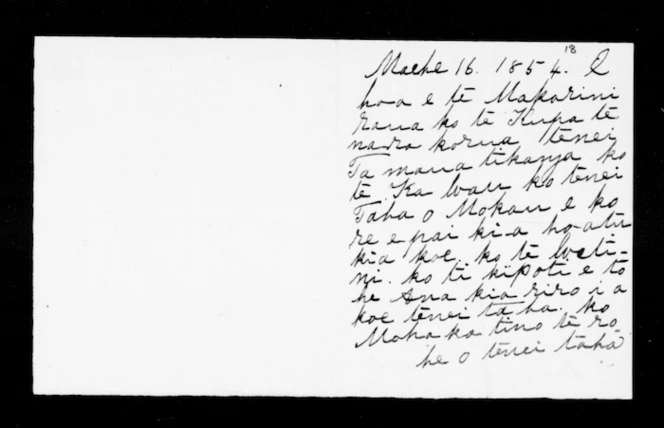 18
Maehe 16. 1854. E
hoa e te Makarini
raua ko te Kupa te
na ra korua tenei
Ta maua tikanga ko
te Ka wau ko tenei
Taha o Mokau e ko
re e pai ki-a ho-atu
kia koe. ko te Weti-
ni. ko ti kipoti e to
he Ana kia riro i a
koe tenei taha. ko
Moha ka tino te ro
he o tenei taha